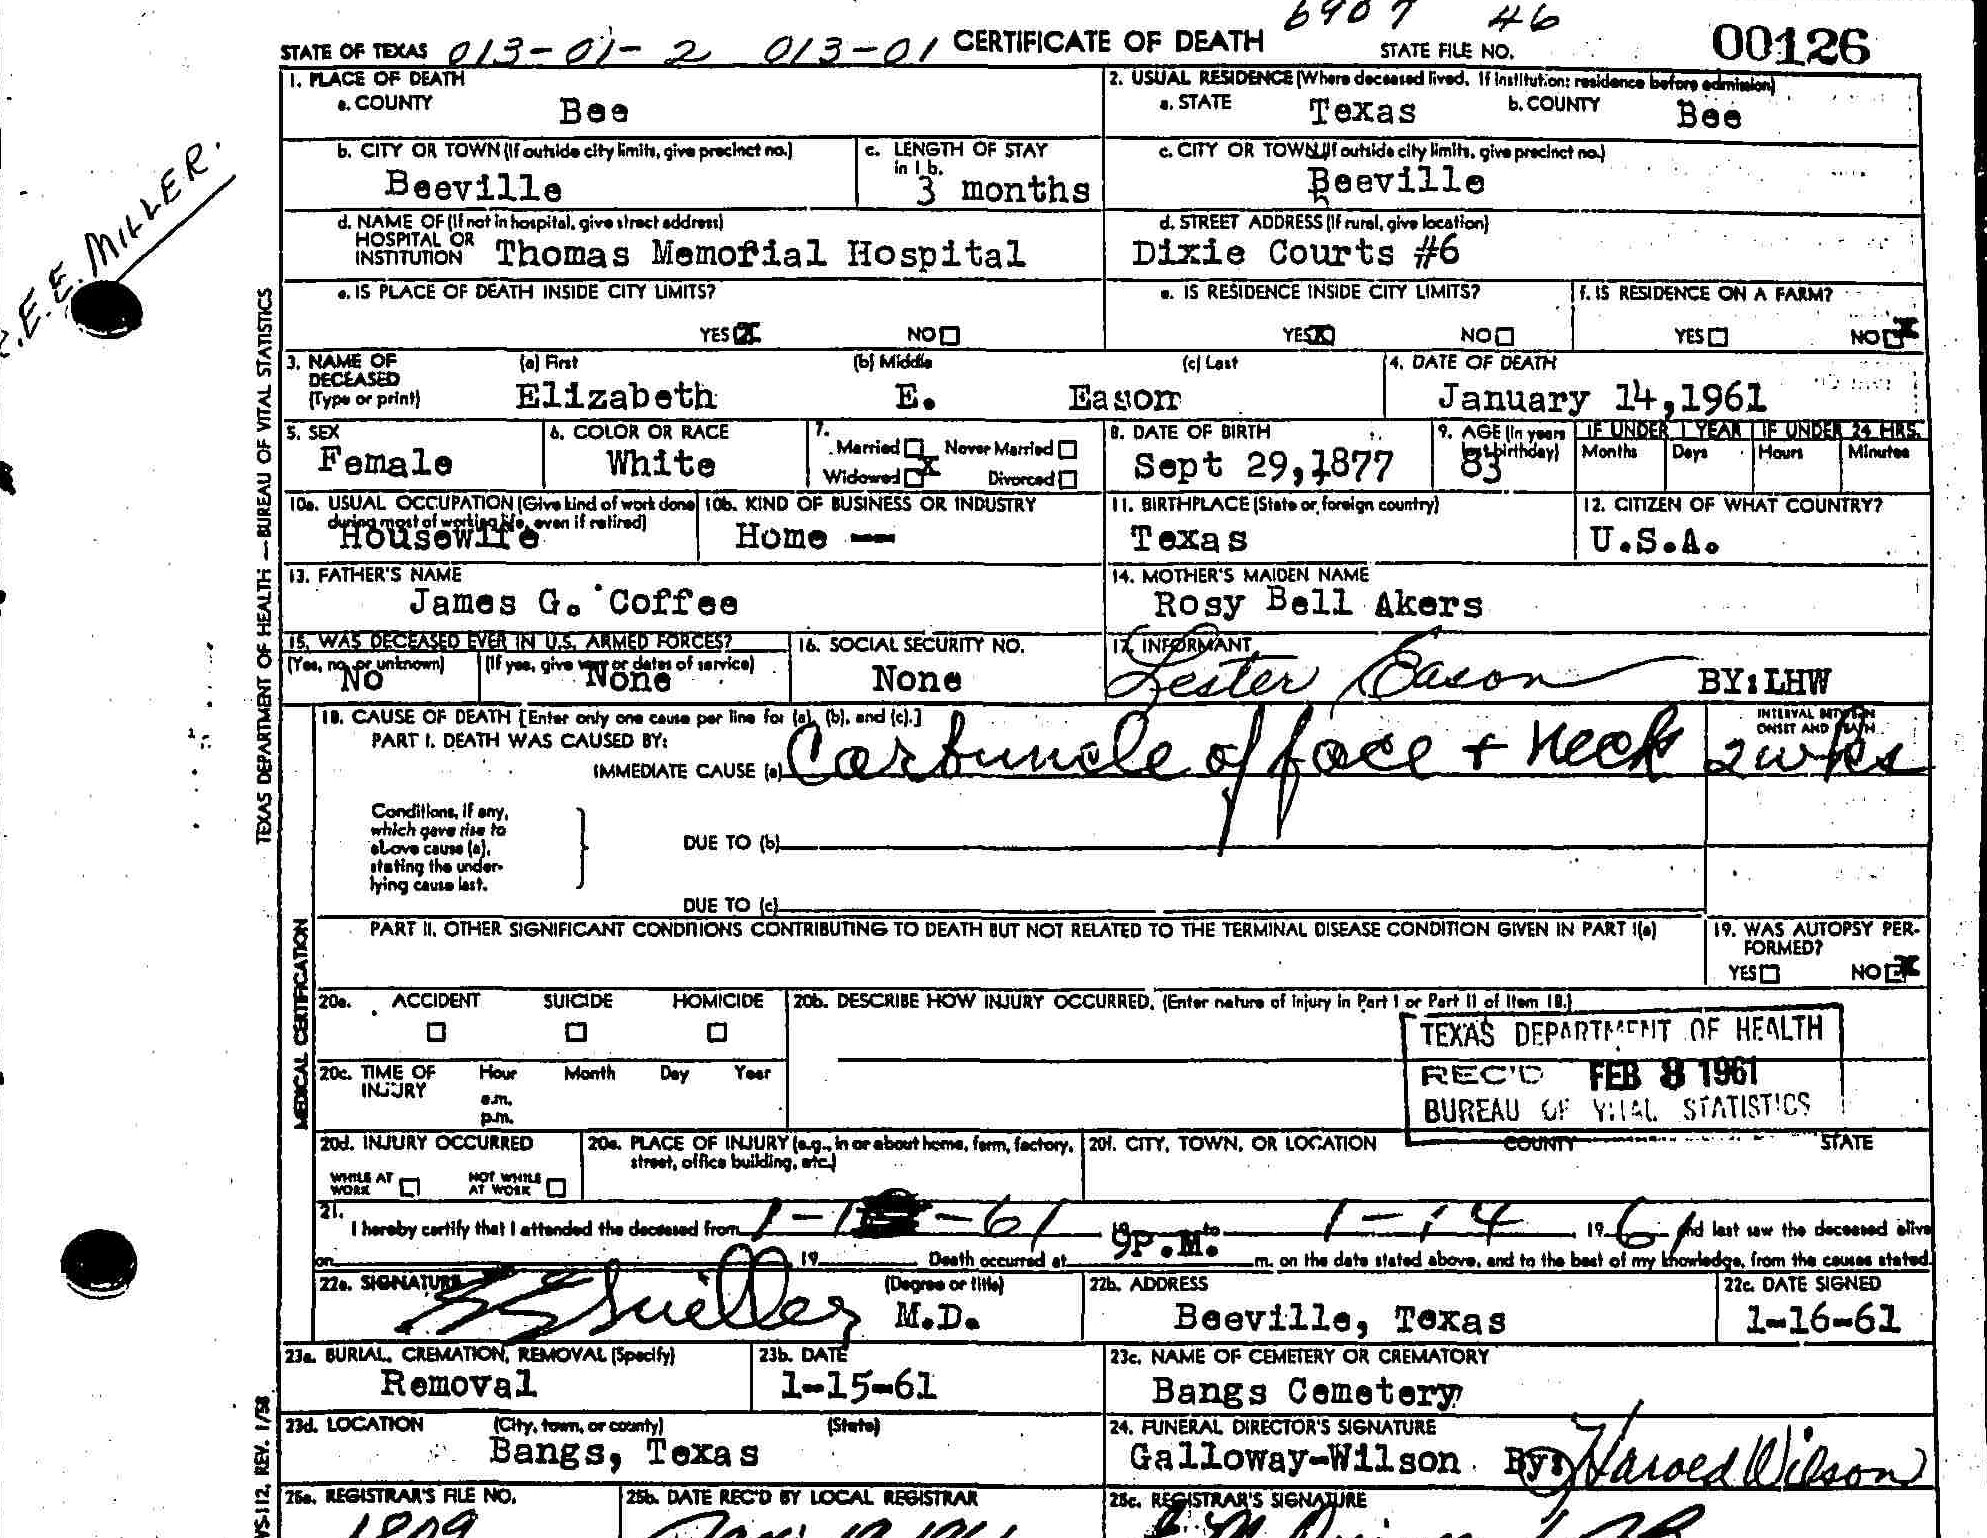 6909 46
STATE OF TEXAS 013-01-2 013-01 CERTIFICATE OF DEATH STATE FILE NO. 00126
1. PLACE OF DEATH
a. COUNTY Bee
2. USUAL RESIDENCE (Where deceased lived. If institution: residence before admission)
a. STATE Texas b. COUNTY Bee
b. CITY OR TOWN (If outside city limits, give precinct no.) Beeville
c. LENGTH OF STAY in 1 b. 3 months
c. CITY OR TOWN (If outside city limits, give precinct no.) Beeville
d. NAME OF (If not in hospital, give street address) HOSPITAL OR INSTITUTION Thomas Memorial Hospital
d. STREET ADDRESS (If rural, give location) Dixie Courts #6
e. IS PLACE OF DEATH INSIDE CITY LIMITS? YES X NO
e. IS RESIDENCE INSIDE CITY LIMITS? YES X NO
f. IS RESIDENCE ON A FARM? YES NO X
3. NAME OF DECEASED (Type or print) (a) First Elizabeth (b) Middle E. (c) Last Eason
4. DATE OF DEATH January 14,1961
5. SEX Female
6. COLOR OR RACE White
7. Married Never Married Widowed X Divorced
8. DATE OF BIRTH Sept 29,1877
9. AGE (In years last birthday) 83
IF UNDER 1 YEAR Months Days
IF UNDER 24 HRS. Hours Minutes
10a. USUAL OCCUPATION (Give kind of work done during most of working life, even if retired) Housewife
10b. KIND OF BUSINESS OR INDUSTRY Home --
11. BIRTHPLACE (State or foreign country) Texas
12. CITIZEN OF WHAT COUNTRY? U.S.A.
13. FATHER'S NAME James G. Coffee
14. MOTHER'S MAIDEN NAME Rosy Bell Akers
15. WAS DECEASED EVER IN U.S. ARMED FORCES?
(Yes, no, or unknown) No
(If yes, give war or dates of service) None
16. SOCIAL SECURITY NO. None
17. INFORMANT Lester Eason BY:LHW
18. CAUSE OF DEATH [Enter only one cause per line for (a), (b), and (c).]
PART I. DEATH WAS CAUSED BY:
IMMEDIATE CAUSE (a) Carbuncle of face + neck
INTERVAL BETWEEN ONSET AND DEATH 2 wks
Conditions, if any,
which gave rise to
above cause (a),
stating the under-
lying cause last.
DUE TO (b)
DUE TO (c)
PART II. OTHER SIGNIFICANT CONDITIONS CONTRIBUTING TO DEATH BUT NOT RELATED TO THE TERMINAL DISEASE CONDITION GIVEN IN PART I(a)
19. WAS AUTOPSY PERFORMED? YES NO X
20a. ACCIDENT SUICIDE HOMICIDE
20b. DESCRIBE HOW INJURY OCCURRED. (Enter nature of injury in Part I or Part II of Item 18.)
TEXAS DEPARTMENT OF HEALTH
REC'D FEB 8 1961
BUREAU OF VITAL STATISTICS
20c. TIME OF INJURY Hour a.m. p.m. Month Day Year
20d. INJURY OCCURRED WHILE AT WORK NOT WHILE AT WORK
20e. PLACE OF INJURY (e.g., in or about home, farm, factory, street, office building, etc.)
20f. CITY, TOWN, OR LOCATION COUNTY STATE
21. I hereby certify that I attended the deceased from 1-1 -61 19 to 1-14 1961 and last saw the deceased alive
on 19 Death occurred at 9P.M. m. on the date stated above, and to the best of my knowledge, from the causes stated.
22a. SIGNATURE (Degree or title) M.D.
22b. ADDRESS Beeville, Texas
22c. DATE SIGNED 1-16-61
23a. BURIAL, CREMATION, REMOVAL (Specify) Removal
23b. DATE 1-15-61
23c. NAME OF CEMETERY OR CREMATORY Bangs Cemetery
23d. LOCATION (City, town, or county) (State) Bangs, Texas
24. FUNERAL DIRECTOR'S SIGNATURE Galloway-Wilson By: Harold Wilson
25a. REGISTRAR'S FILE NO. 1809
25b. DATE REC'D BY LOCAL REGISTRAR
25c. REGISTRAR'S SIGNATURE
E.E. MILLER.
TEXAS DEPARTMENT OF HEALTH — BUREAU OF VITAL STATISTICS
MEDICAL CERTIFICATION
VS-112, REV. 1/58